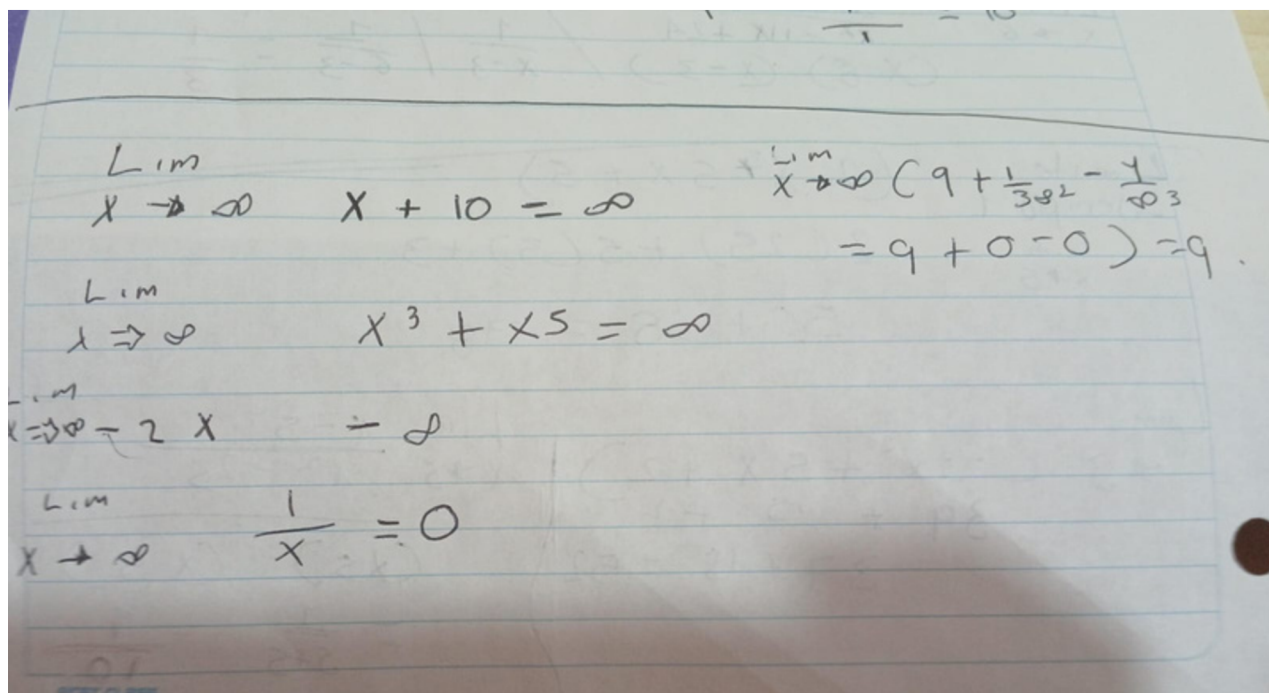 Lim
x → ∞ x + 10 = ∞
Lim
x ⇒ ∞ x³ + x5 = ∞
Lim
x ⇒ ∞ - 2 x - ∞
Lim
x → ∞ 1/x = 0
Lim
x → ∞ (9 + 1/3∞² - 4/∞3
= 9 + 0 - 0) = 9.